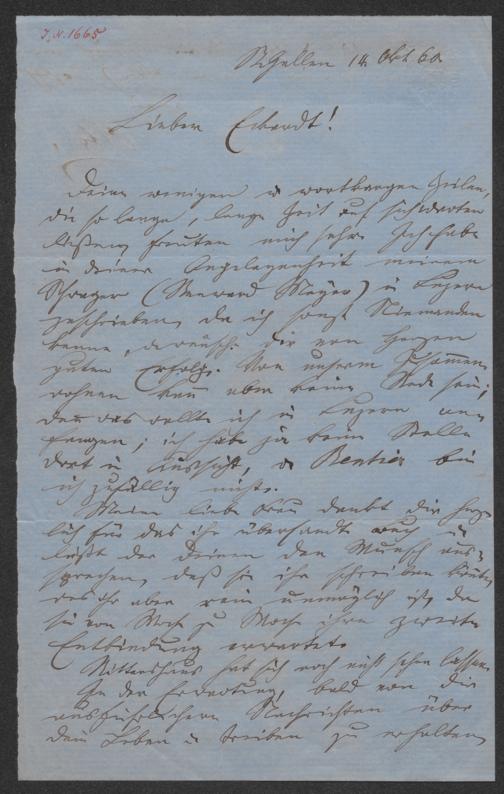 I. N. 1665
St. Gallen 14. Okt. 60
Lieber Eckardt!
Deine wenigen u wortkargen Zeilen,
die so lange, lange Zeit auf sich warten
ließen, freuten mich sehr. Ich habe
in deiner Angelegenheit meinem
Schwager (Meyer) in Luzern
geschrieben, da ich sonst Niemanden
kenne, u wünsche dir von Herzen
guten Erfolg. Von unserm Zusammen
wohnen kann aber keine Rede sein;
denn was wollte ich in Luzern an
fangen; ich habe ja keine Stelle
dort in Aussicht, u Rentier bin
ich zufällig nicht.
Meine liebe Frau dankt dir herz
lich für das ihr übersandte u
läßt der Deinen den Wunsch aus
sprechen, daß sie ihr schreiben könnte,
was ihr aber rein unmöglich ist, da
sie von Woche zu Woche ihre zweite
Entbindung erwartet.
Rittershaus hat sich noch nicht sehen lassen.
In der Erwartung, bald von dir
ausführlichere Nachrichten über
dein Leben u treiben zu erhalten,